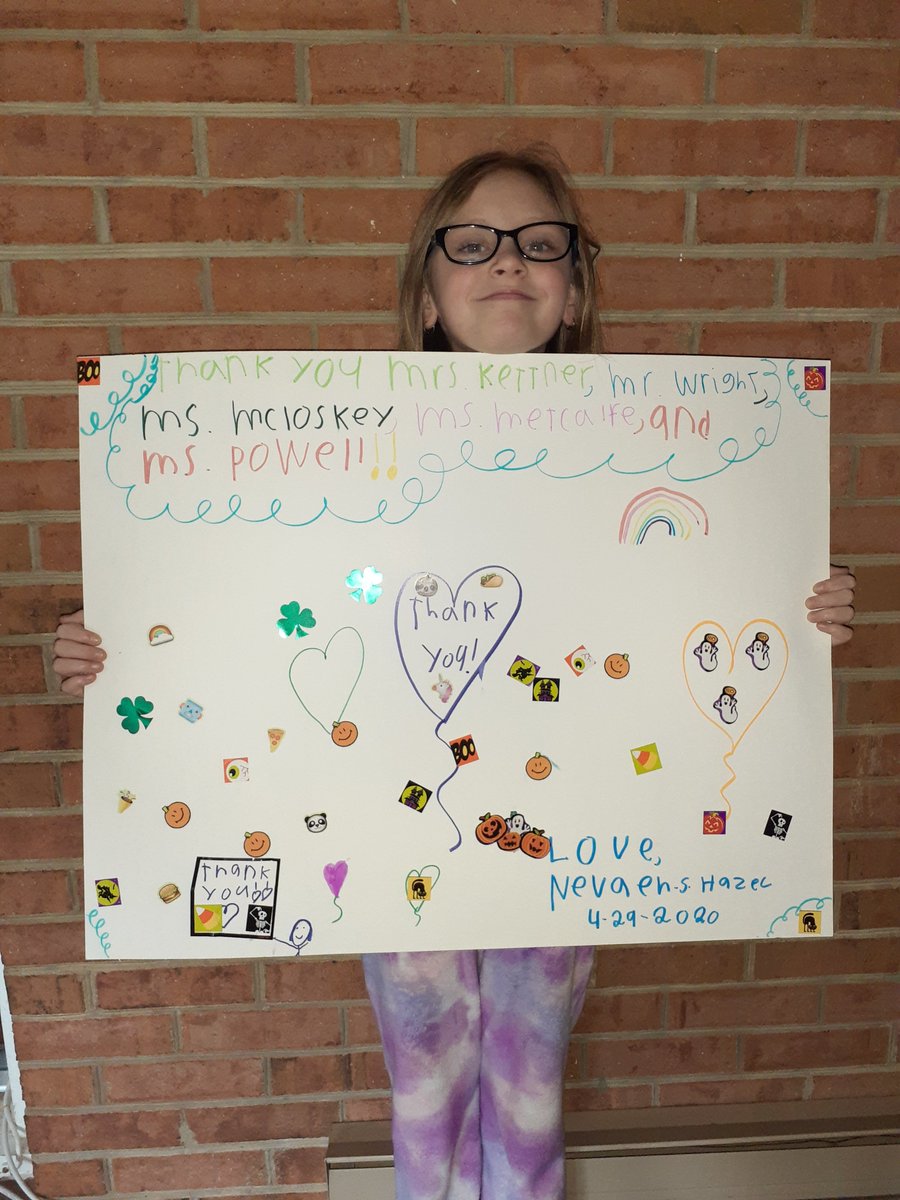 BOO
Thank you mrs Kettner, mr. wright,
ms. mcloskey, ms. metcalfe, and
ms. Powell!!
Thank
you!
BOO
Thank
you!
Love,
Nevaeh.S. Hazel
4-29-2020